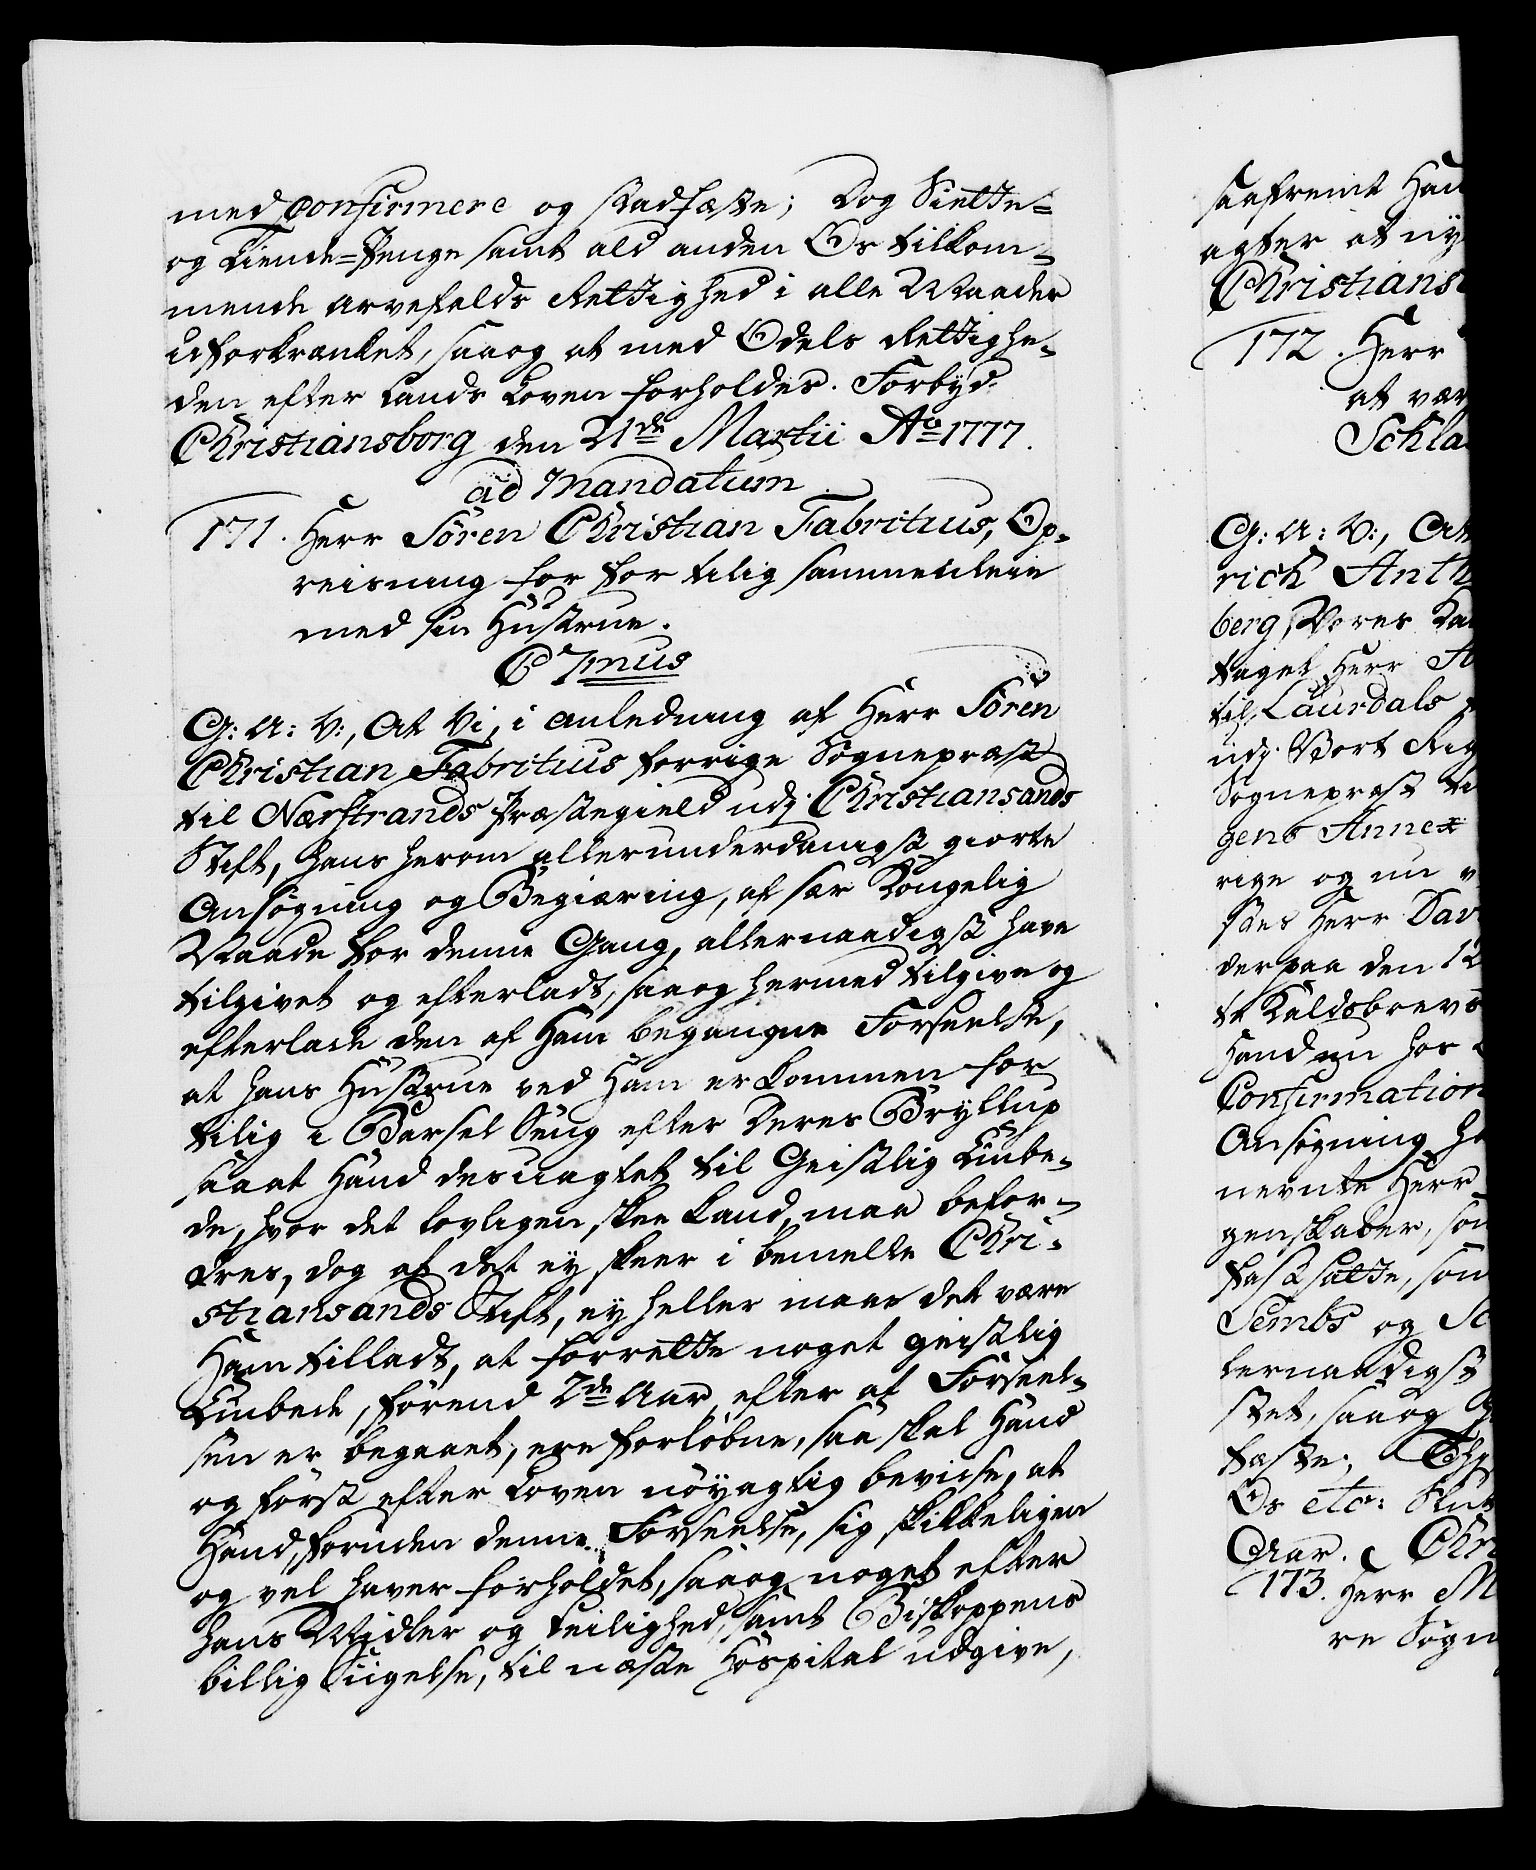 med confirmere og stadfæste; Dog Siette-
og Tiende-Penge samt ald anden Os tilkom-
mende arvefalds Rettighed i alle Maader
uforkrænket, saa og at med Odels Rettighe-
den efter Lands Loven forholdes. Forbyd.
Christiansborg den 21de Martii Ao 1777.
ad Mandatum
171. Herr Sören Christian Fabritius, Op-
reisning for for tilig sammenleie
med sin Hustrue.
C 7mus
G: A: V:, At Vi, i anledning af Herr Sören
Christian Fabritius forrige Sognepræst
til Nærstrands Præstegield udj Christiansands
Stift, hans herom allerunderdanigst giorte
Ansøgning og Begiæring, af sær Kongelig
Naade for denne Gang, allernaadigst have
tilgivet og efterladt, saa og hermed tilgive og
efterlade den af Ham begangne Forseelse,
at hans Hustrue ved Ham er kommen for
tilig i Barsel Seng efter deres Bryllup
saa at Hand desuagtet til Geistlig Embe-
de, hvor det lovligen skee kand, maa befor-
dres, dog at det ey skeer i bemelte Chri-
stiansands Stift, ey heller maae det være
Ham tilladt, at forrette noget geistlig
Embede, förend 2de Aar, efter at Forseel-
sen er begaaet, ere forløbne, saa skal Hand
og först efter Loven nöyagtig bevise, at
Hand, foruden denne Forseelse, sig skikkeligen
og vel haver forholdet, saa og noget efter
hans Midler og Leilighed, samt Biskoppens
billig Sigelse, til næste Hospital udgive,
saafremt Han
agter at ny
Christians
172. Herr
at vær
Schla
G: A: V:, At
rich Anth
berg, Vores Ka
taget Herr A
til Laurdals
udj Vort Rig
Sognepræst ti
gens Annex
rige og nu v
stes Herr Dav
derpaa den 12
te Kaldsbrevs
Hand nu hos
Confirmation
Ansøgning ha
nevnte Herr
genskaber, som
fastsatte, som
Sembs og Sc
lernaadigst
stet, saa og
fæste;
Os etc:
Aar. Chri
173. Herr M
re Sogn